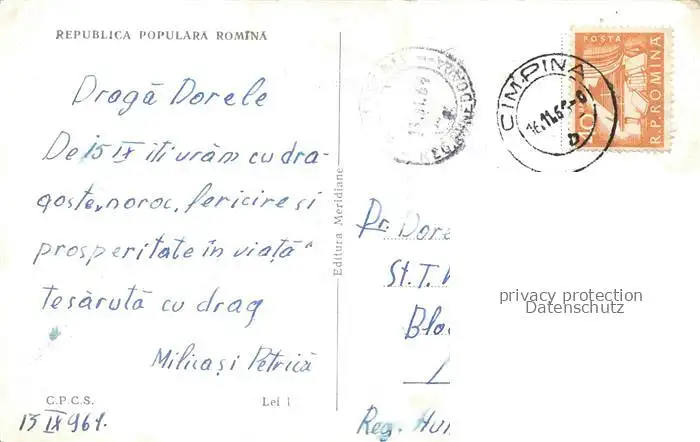 REPUBLICA POPULARĂ ROMÎNĂ
Dragă Dorele
De 15 IX iti urăm cu dra-
goste, noroc, fericire si
prosperitate în viață"
Te sărută cu drag
Milica si Petrică
C.P.C.S. Lei 1
15 IX 961.
Editura Meridiane
CIMPINA
POSTA
R.P.ROMINA
Dr. Dore
St. T.
Bloc
Reg. Hun
privacy protection
Datenschutz